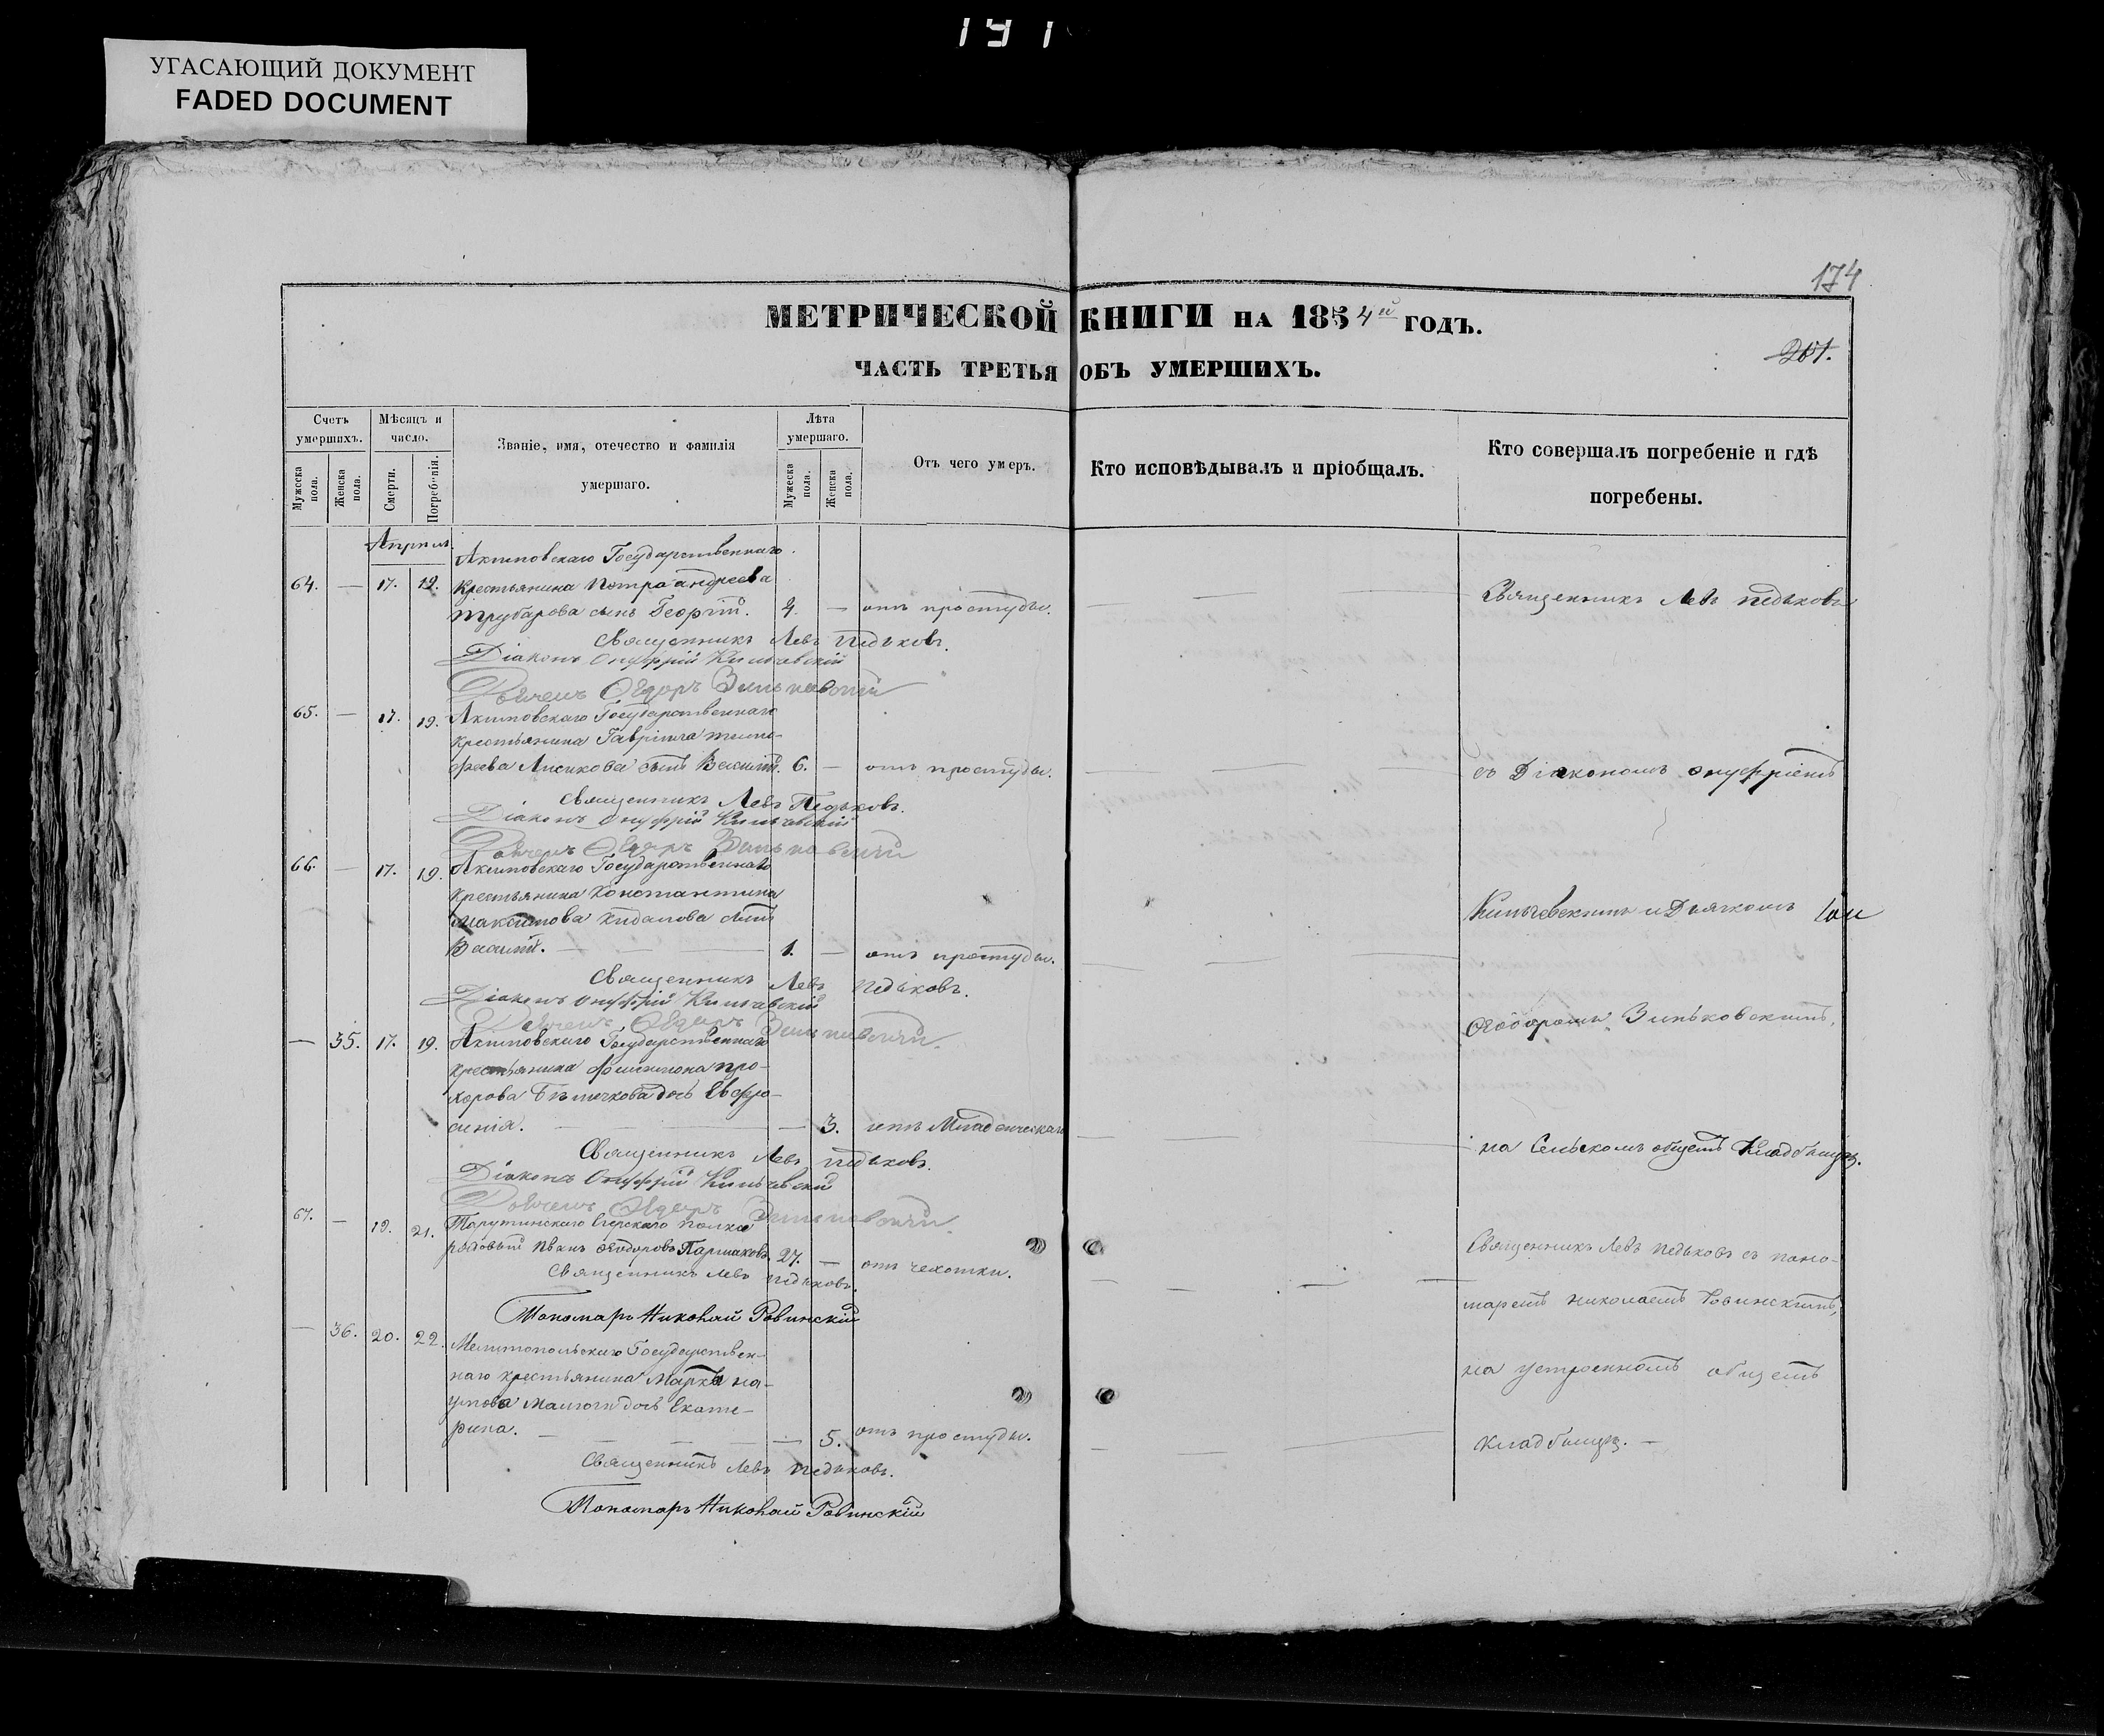 191
УГАСАЮЩИЙ ДОКУМЕНТ
FADED DOCUMENT
174
МЕТРИЧЕСКОЙ КНИГИ НА 1854й ГОДЪ.
201.
ЧАСТЬ ТРЕТЬЯ ОБЪ УМЕРШИХЪ.
Счетъ умершихъ.
Мужеска пола.
Женска пола.
Мѣсяцъ и число.
Смерти.
Погребенія.
Званіе, имя, отечество и фамилія умершаго.
Лѣта умершаго.
Мужеска пола.
Женска пола.
Отъ чего умеръ.
Кто исповѣдывалъ и пріобщалъ.
Кто совершалъ погребеніе и гдѣ погребены.
Апрѣль.
Акимовскаго Государственнаго
64. — 17. 19. Крестьянина Петра Андреева
Трубарова сынъ Георгій. 4. — отъ простуды.
Священникъ Левъ Педьковъ.
Діаконъ Онуфрій Кильчевскій
Дьячекъ Ѳедоръ Зиньковскій
65. — 17. 19. Акимовскаго Государственнаго
крестьянина Гавріила Тимо-
феева Лисикова сынъ Василій. 6. — отъ простуды.
Священникъ Левъ Педьковъ.
Діаконъ Онуфрій Кильчевскій
Дьячекъ Ѳедоръ Зиньковскій
66. — 17. 19. Акимовскаго Государственнаго
крестьянина Константина
Максимова сынъ
Василій. — 1. — отъ простуды.
Священникъ Левъ Педьковъ.
Діаконъ Онуфрій Кильчевскій
Дьячекъ Ѳедоръ Зиньковскій.
— 35. 17. 19. Акимовскаго Государственнаго
крестьянина Филимона Про-
хорова дочь Евфро-
синія. — 3. отъ Младенческой
Священникъ Левъ Педьковъ.
Діаконъ Онуфрій Кильчевскій
Дьячекъ Ѳедоръ Зиньковскій
67. — 19. 21. Тарутинскаго Егерскаго полка
рядовый Иванъ Ѳеодоровъ 27. — отъ чехотки.
Священникъ Левъ Педьковъ.
Пономарь Николай Ровинскій
— 36. 20. 22. Мелитопольскаго Государствен-
наго крестьянина Марка На-
умова дочь Екате-
рина. — 5. отъ простуды.
Священникъ Левъ Педьковъ.
Пономарь Николай Ровинскій
Священникъ Левъ Педьковъ
съ Діакономъ Онуфріемъ
Кильчевскимъ и Дьячкомъ
Ѳеодоромъ Зиньковскимъ,
на Сельскомъ общемъ Кладбищѣ.
Священникъ Левъ Педьковъ съ поно-
маремъ Николаемъ Ровинскимъ,
на устроенномъ общемъ
кладбищѣ. —